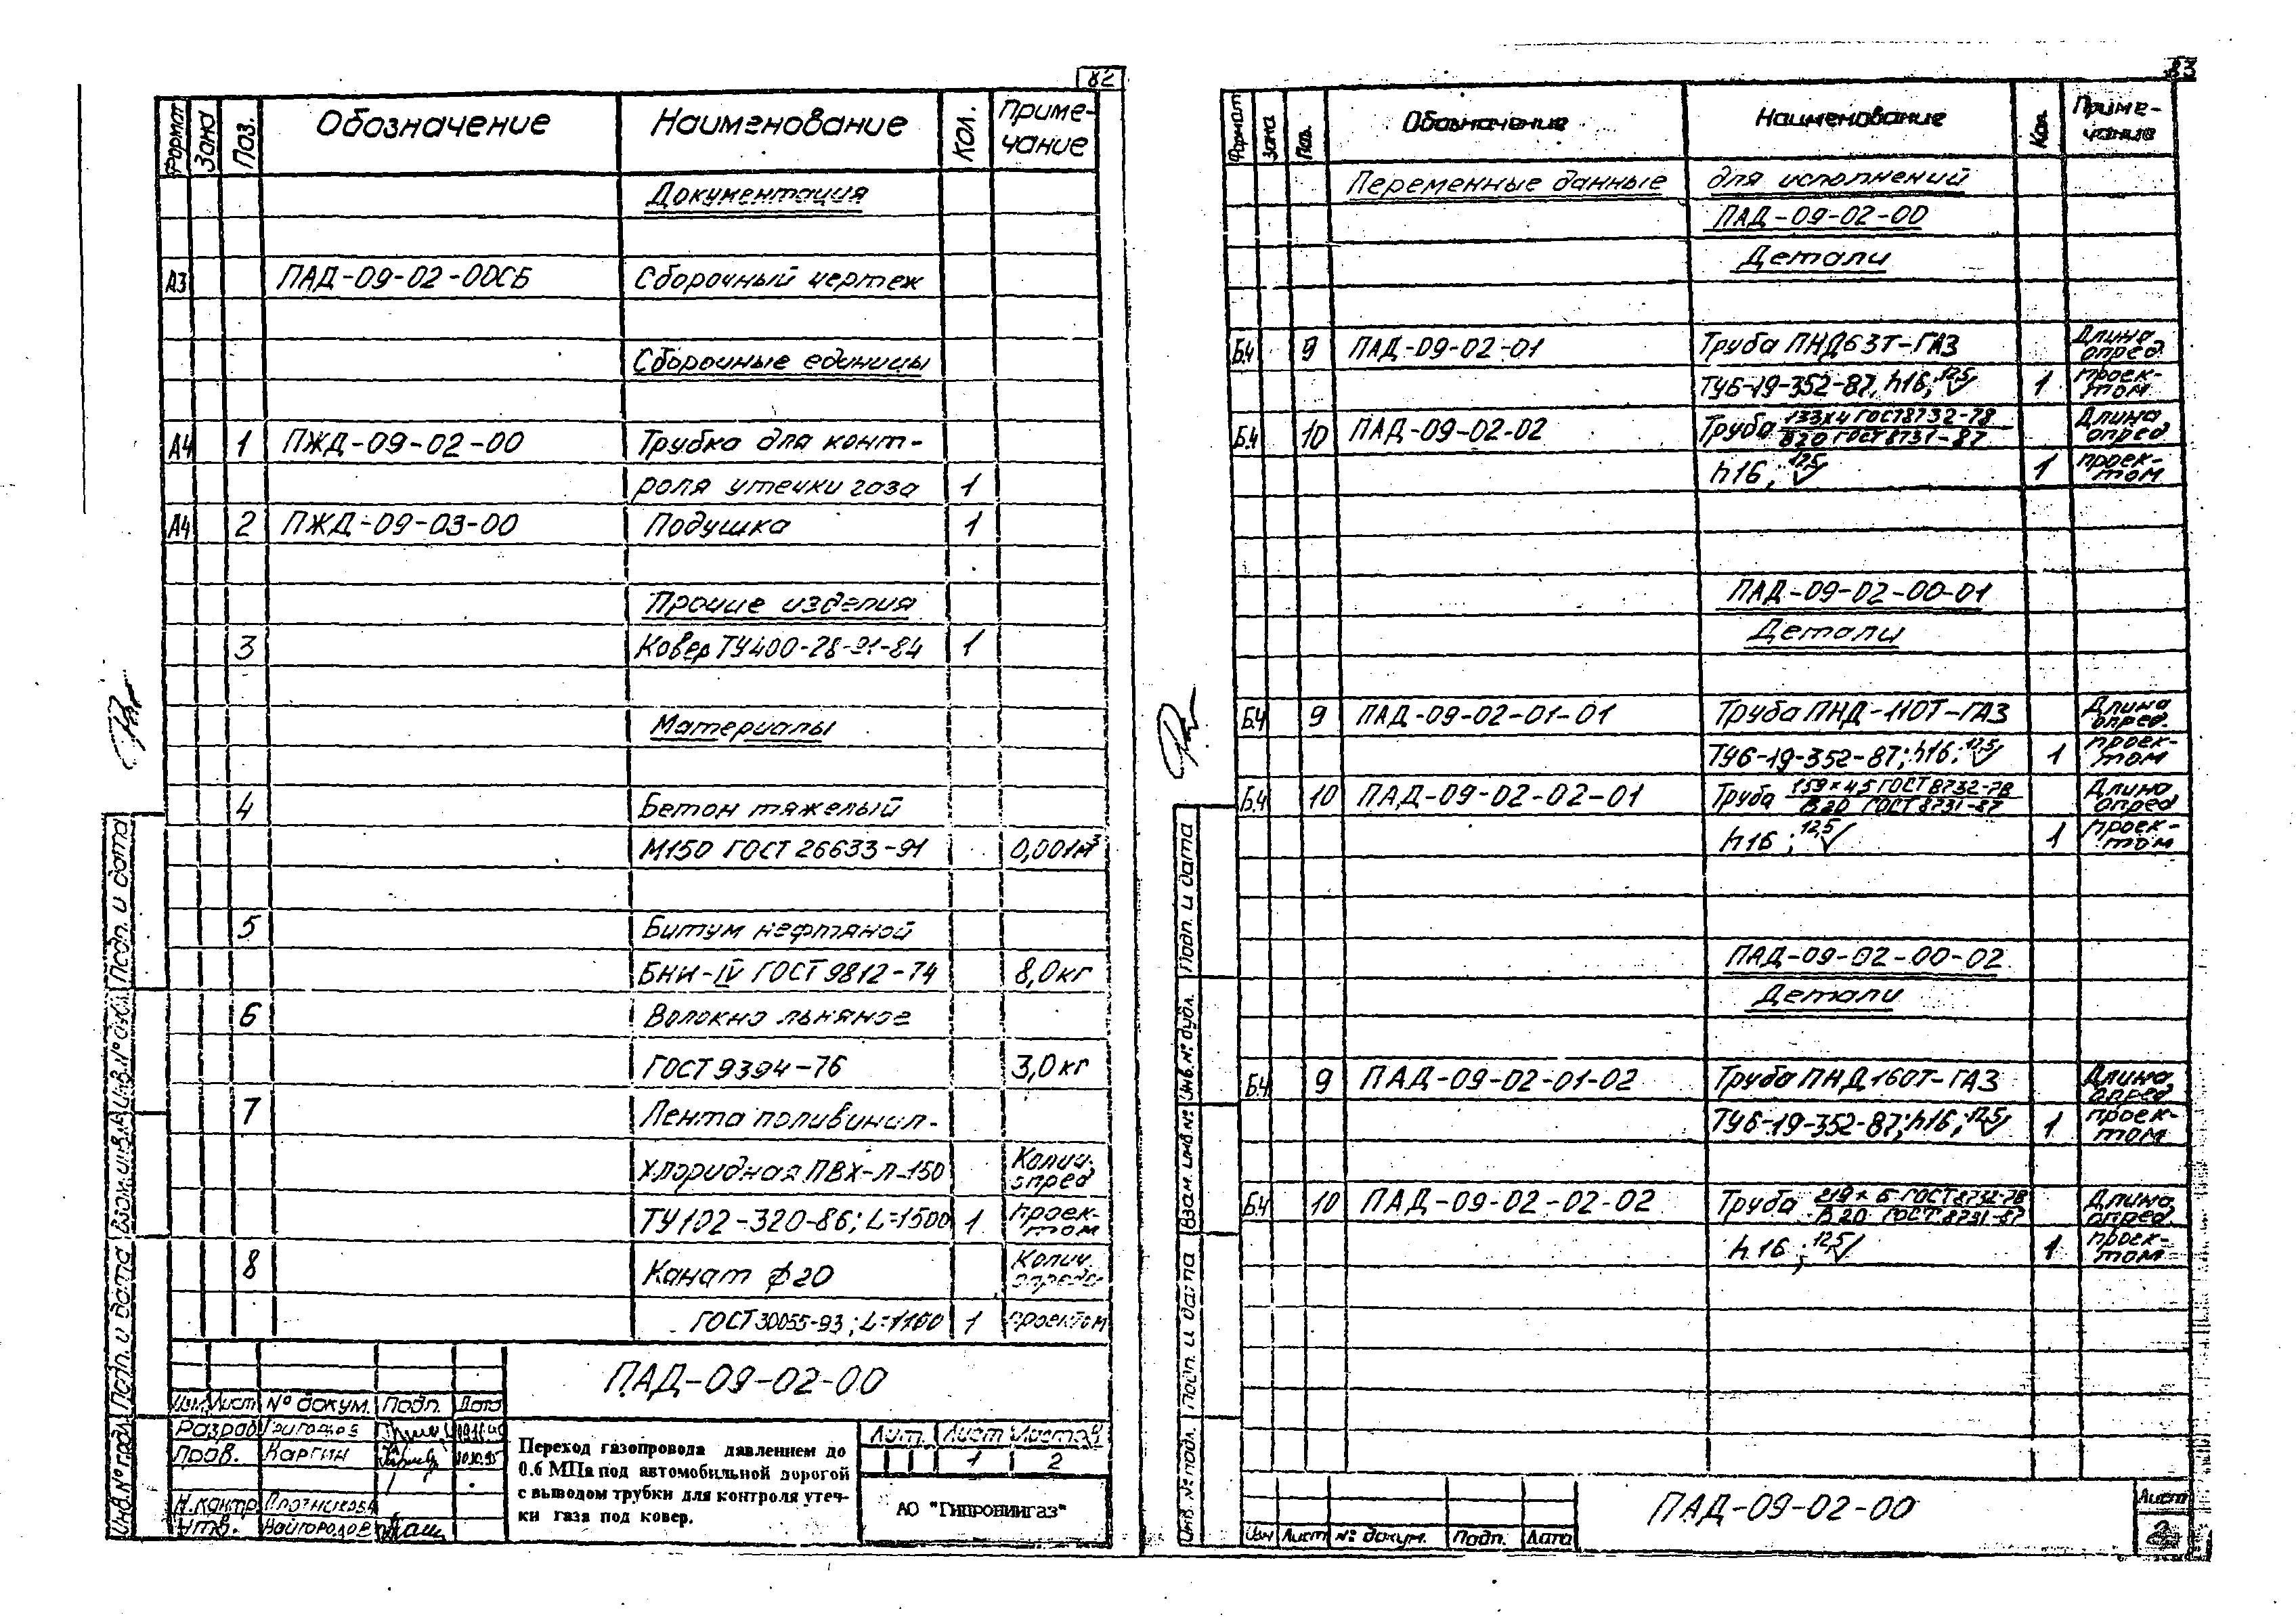 82
Формат Зона Поз. Обозначение Наименование Кол. Приме-
чание
Документация
А3 ПАД-09-02-00СБ Сборочный чертеж
Сборочные единицы
А4 1 ПЖД-09-02-00 Трубка для конт-
роля утечки газа 1
А4 2 ПЖД-09-03-00 Подушка 1
Прочие изделия
3 Ковер ТУ400-28-91-84 1
Материалы
4 Бетон тяжелый
М150 ГОСТ 26633-91 0,001м³
5 Битум нефтяной
БНИ-IV ГОСТ 9812-74 8,0кг
6 Волокно льняное
ГОСТ 9394-76 3,0кг
7 Лента поливинил-
хлоридная ПВХ-Л-150 Колич. опред
ТУ102-320-86; L=1500 1 проек-
том
8 Канат ф20 Колич.
ГОСТ 30055-93; L=1100 1 проектом
ПАД-09-02-00
Изм. Лист № докум. Подп. Дата
Разраб.
Пров. Каргин 10.10.95
Н.контр. Плотникова
Утв. Найгородов
Переход газопровода давлением до
0.6 МПа под автомобильной дорогой
с выводом трубки для контроля утеч-
ки газа под ковер.
Лит. Лист Листов
1 2
АО "Гипрониигаз"
Инв.№ подл. Подп. и дата Взам. инв.№ Инв.№ дубл. Подп. и дата
83
Формат Зона Поз. Обозначение Наименование Кол. Приме-
чание
Переменные данные для исполнений
ПАД-09-02-00
Детали
Б.4 9 ПАД-09-02-01 Труба ПНД63Т-ГАЗ Длина опред.
ТУ6-19-352-87; h16; 12,5√ 1 проек-
том
Б.4 10 ПАД-09-02-02 Труба 133х4 ГОСТ8732-78 Длина опред
В20 ГОСТ 8731-87
h16; 12,5√ 1 проек-
том
ПАД-09-02-00-01
Детали
Б.4 9 ПАД-09-02-01-01 Труба ПНД-110Т-ГАЗ Длина опред.
ТУ6-19-352-87; h16; 12,5√ 1 проек-
том
Б.4 10 ПАД-09-02-02-01 Труба 159х4,5 ГОСТ8732-78 Длина опред
В20 ГОСТ 8731-87
h16; 12,5√ 1 проек-
том
ПАД-09-02-00-02
Детали
Б.4 9 ПАД-09-02-01-02 Труба ПНД160Т-ГАЗ Длина опред
ТУ6-19-352-87; h16; 12,5√ 1 проек-
том
Б.4 10 ПАД-09-02-02-02 Труба 219х6 ГОСТ8732-78 Длина опред.
В20 ГОСТ 8731-87
h16; 12,5√ 1 проек-
том
ПАД-09-02-00
Изм Лист № докум. Подп. Дата
Лист
2
Инв. № подл. Подп. и дата Взам. инв.№ Инв.№ дубл. Подп. и дата